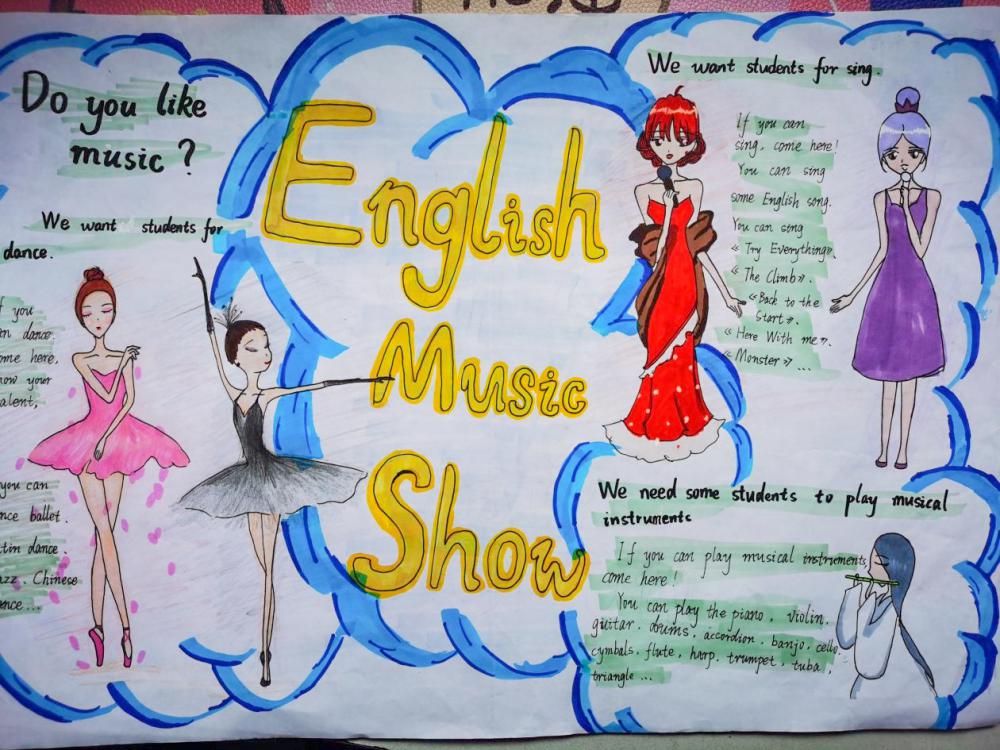 Do you like
music ?
We want students for
dance.
you
dance.
here,
your
you can
ballet.
dance.
Chinese
English
Music
Show
We want students for sing.
If you can
sing, come here!
You can sing
some English song.
You can sing
《Try Everything》.
《The Climb》.
《Back to the
Start》.
《Here With me》.
《Monster》...
We need some students to play musical
instruments
If you can play musical instruments,
come here!
You can play the piano, violin,
guitar, drums, accordion, banjo, cello,
cymbals, flute, harp, trumpet, tuba,
triangle ...